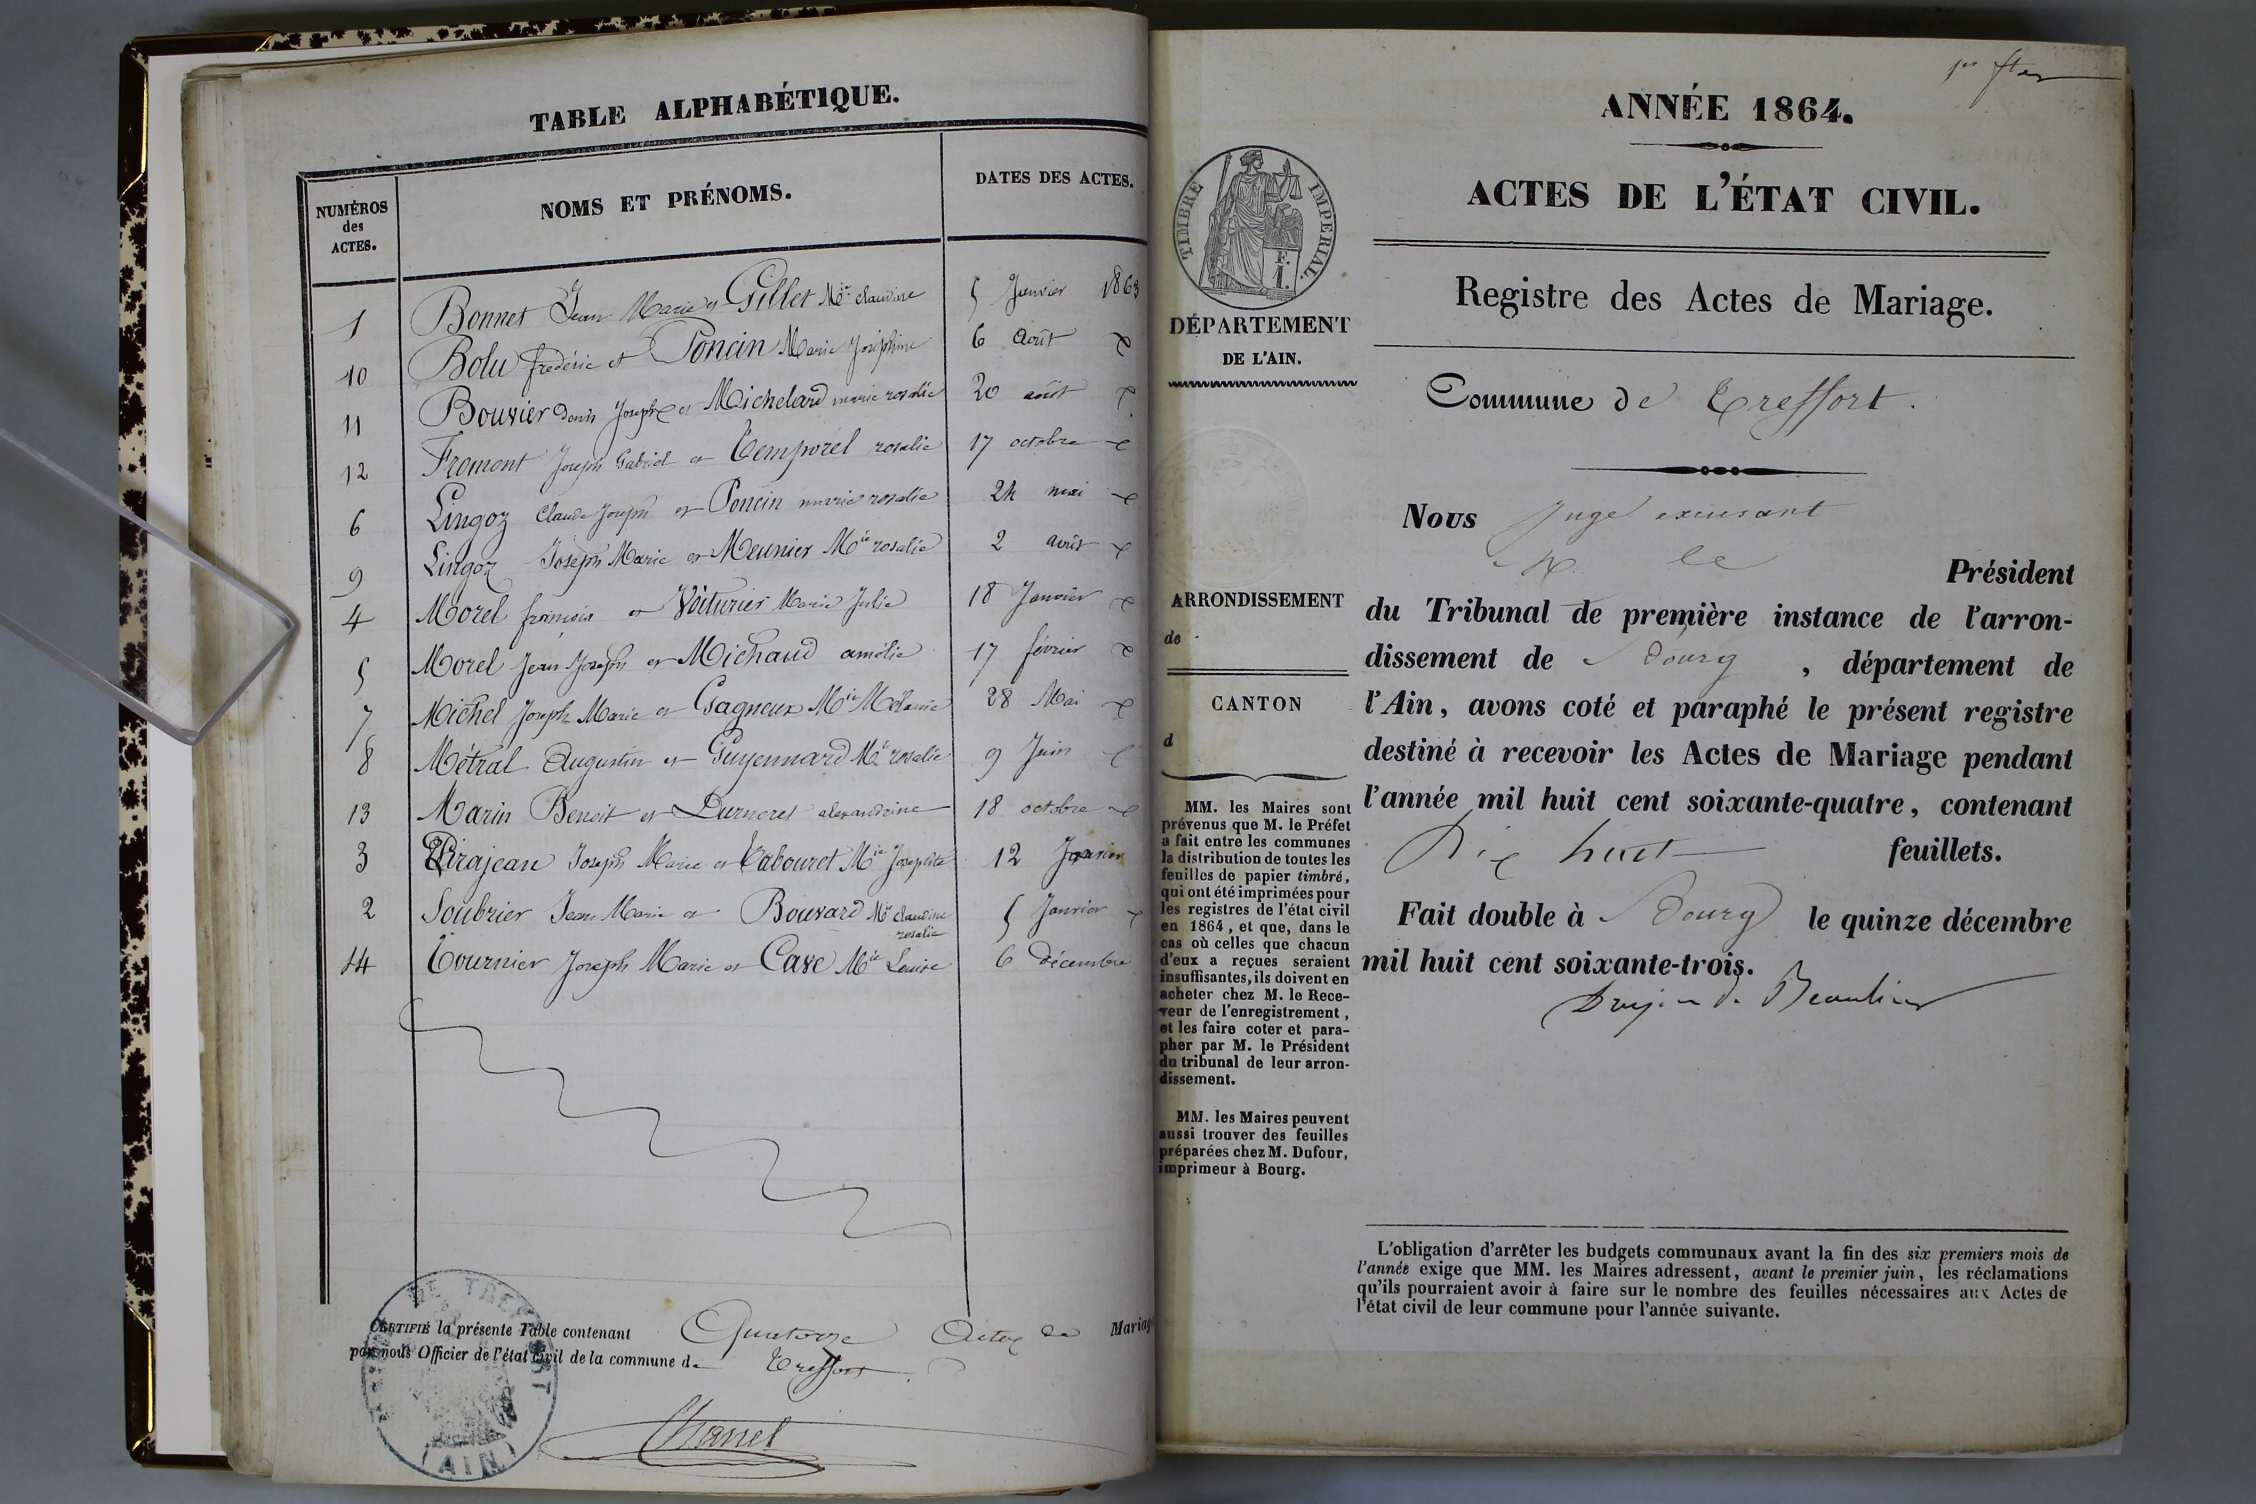 TABLE ALPHABÉTIQUE.
NUMÉROS des ACTES.
NOMS ET PRÉNOMS.
DATES DES ACTES.
1 Bonnet Jean Marie et Gillet Mie claudine 5 Janvier 1863
10 Bolu frédéric et Poncin Marie Joséphine 6 Août
11 Bouvier denis Joseph et Michelard marie rosalie 20 août
12 Froment Joseph Gabriel et Temporel rosalie 17 octobre
6 Lingoz Claude Joseph et Poncin marie rosalie 24 mai
9 Lingoz Joseph Marie et Meunier Mie rosalie 2 août
4 Morel françois et Voiturier Marie Julie 18 Janvier
5 Morel Jean Joseph et Michaud amélie 17 février
7 Michel Joseph Marie et Gagneux Mie Mélanie 28 Mai
8 Métral Augustin et Guyennard Mie rosalie 9 Juin
13 Marin Benoit et Durneret alexandrine 18 octobre
3 Pirajean Joseph Marie et Tabouret Mie Josephte 12 Janvier
2 Soubrier Jean Marie et Bouvard Mie claudine 5 Janvier
rosalie
14 Tournier Joseph Marie et Cave Mie Louise 6 décembre
CERTIFIÉ la présente Table contenant Quatorze Actes de Mariage
par nous Officier de l'état civil de la commune de Treffort.
Chanel
DE TREFFORT
(AIN)
ANNÉE 1864.
ACTES DE L'ÉTAT CIVIL.
Registre des Actes de Mariage.
TIMBRE IMPÉRIAL.
F.
1.
DÉPARTEMENT
DE L'AIN.
ARRONDISSEMENT
de
CANTON
d
MM. les Maires sont
prévenus que M. le Préfet
a fait entre les communes
la distribution de toutes les
feuilles de papier timbré,
qui ont été imprimées pour
les registres de l'état civil
en 1864, et que, dans le
cas où celles que chacun
d'eux a reçues seraient
insuffisantes, ils doivent en
acheter chez M. le Rece-
veur de l'enregistrement,
et les faire coter et para-
pher par M. le Président
du tribunal de leur arron-
dissement.
MM. les Maires peuvent
aussi trouver des feuilles
préparées chez M. Dufour,
imprimeur à Bourg.
Commune de Treffort.
Nous Juge
le Président
du Tribunal de première instance de l'arron-
dissement de Bourg, département de
l'Ain, avons coté et paraphé le présent registre
destiné à recevoir les Actes de Mariage pendant
l'année mil huit cent soixante-quatre, contenant
Dix huit feuillets.
Fait double à Bourg le quinze décembre
mil huit cent soixante-trois.
de Beaulieu
L'obligation d'arrêter les budgets communaux avant la fin des six premiers mois de
l'année exige que MM. les Maires adressent, avant le premier juin, les réclamations
qu'ils pourraient avoir à faire sur le nombre des feuilles nécessaires aux Actes de
l'état civil de leur commune pour l'année suivante.